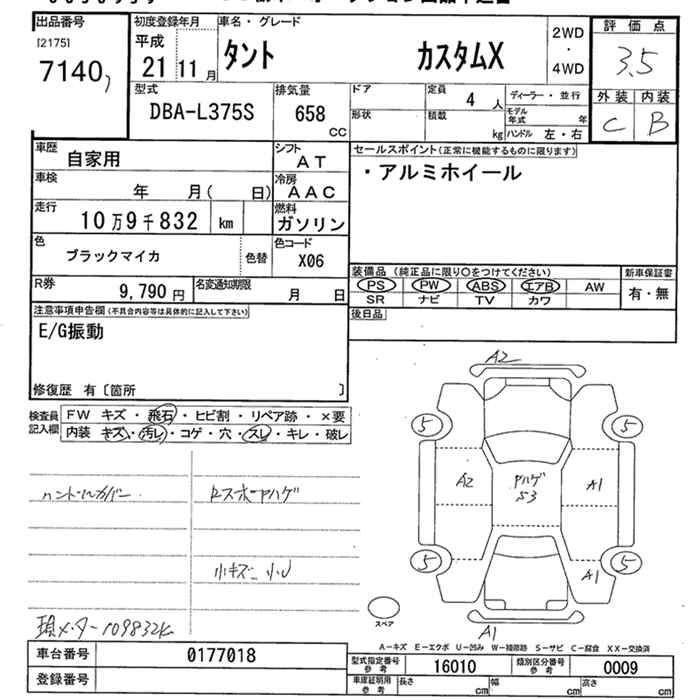 出品番号 初度登録年月 車名・グレード 2WD ・ 4WD 評価点
[2175] 平成
7140 21 11月 タント カスタムX 3.5
型式 排気量 ドア 定員 4 人 ディーラー・並行 外装 内装
DBA-L375S 658 cc 形状 積載 kg モデル年式 年 C B
ハンドル 左・右
車歴 自家用 シフト AT セールスポイント(正常に機能するものに限ります)
車検 年 月( 日) 冷房 AAC ・アルミホイール
走行 10万9千832 km 燃料 ガソリン
色 ブラックマイカ 色替 色コード X06
装備品(純正品に限り○をつけてください) 新車保証書
R券 9,790円 名変通知期限 月 日 PS PW ABS エアB AW 有・無
SR ナビ TV カワ
注意事項申告欄(不具合内容等は具体的に記入して下さい) 後日品
E/G振動
修復歴 有〔箇所 〕
検査員記入欄 FW キズ・飛石・ヒビ割・リペア跡・×要
内装 キズ・汚レ・コゲ・穴・スレ・キレ・破レ
A2
5 5
A2 Pハゲ A1
53
ハンドルカバー
小キズ 小U
5 5
A1
A1
スペア
現メーター109832K
A-キズ E-エクボ U-凹み W-補修跡 S-サビ C-腐食 XX-交換済
車台番号 0177018 型式指定番号 参考 16010 類別区分番号 参考 0009
登録番号 車庫証明用 参考 長さ cm 幅 cm 高さ cm